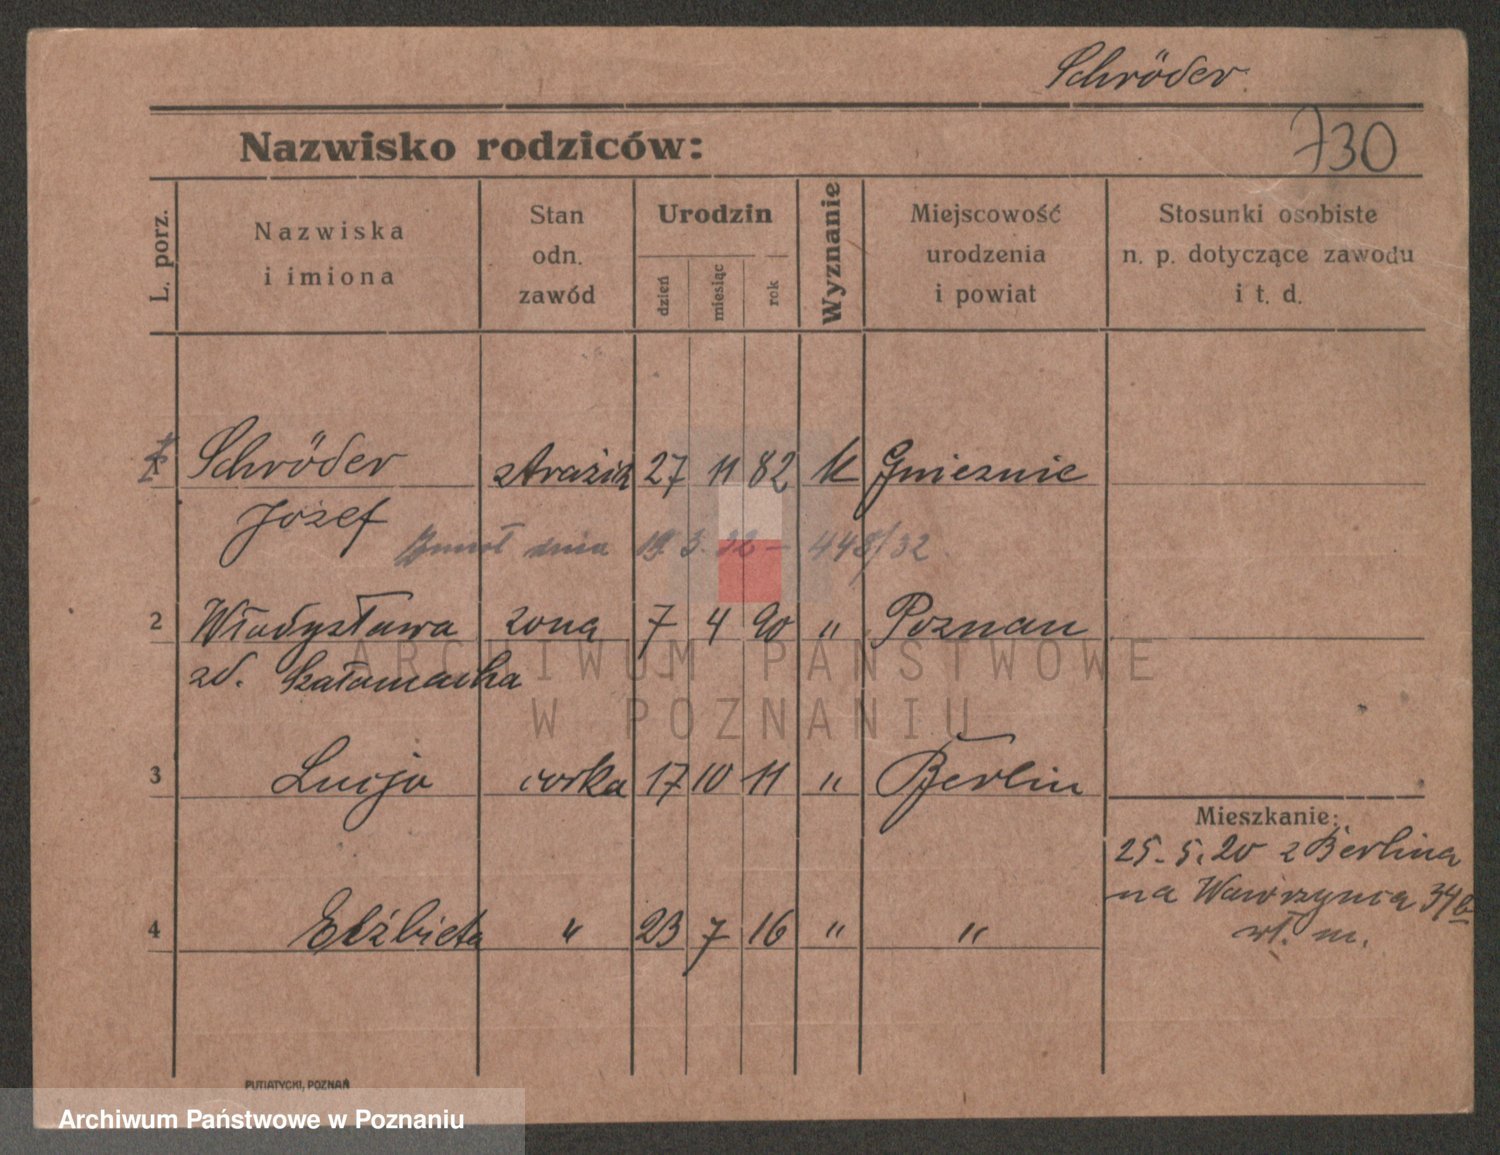 Schröder
Nazwisko rodziców:
730
L. porz.
Nazwiska
i imiona
Stan
odn.
zawód
Urodzin
dzień
miesiąc
rok
Wyznanie
Miejscowość
urodzenia
i powiat
Stosunki osobiste
n. p. dotyczące zawodu
i t. d.
Schröder 27 11 82 k Gnieznie
Józef
dnia 19. 3. 32 – 448/32
2 Władysława zona 7 4 90 " Poznan
zd. Szałamacha
3 Lucja corka 17 10 11 " Berlin
Mieszkanie:
25. 5. 20 z Berlina
na Wawrzynca 34
4 Elżbieta " 23 7 16 " "
wł. m.
PUTIATYCKI, POZNAŃ
ARCHIWUM PAŃSTWOWE
W POZNANIU
Archiwum Państwowe w Poznaniu